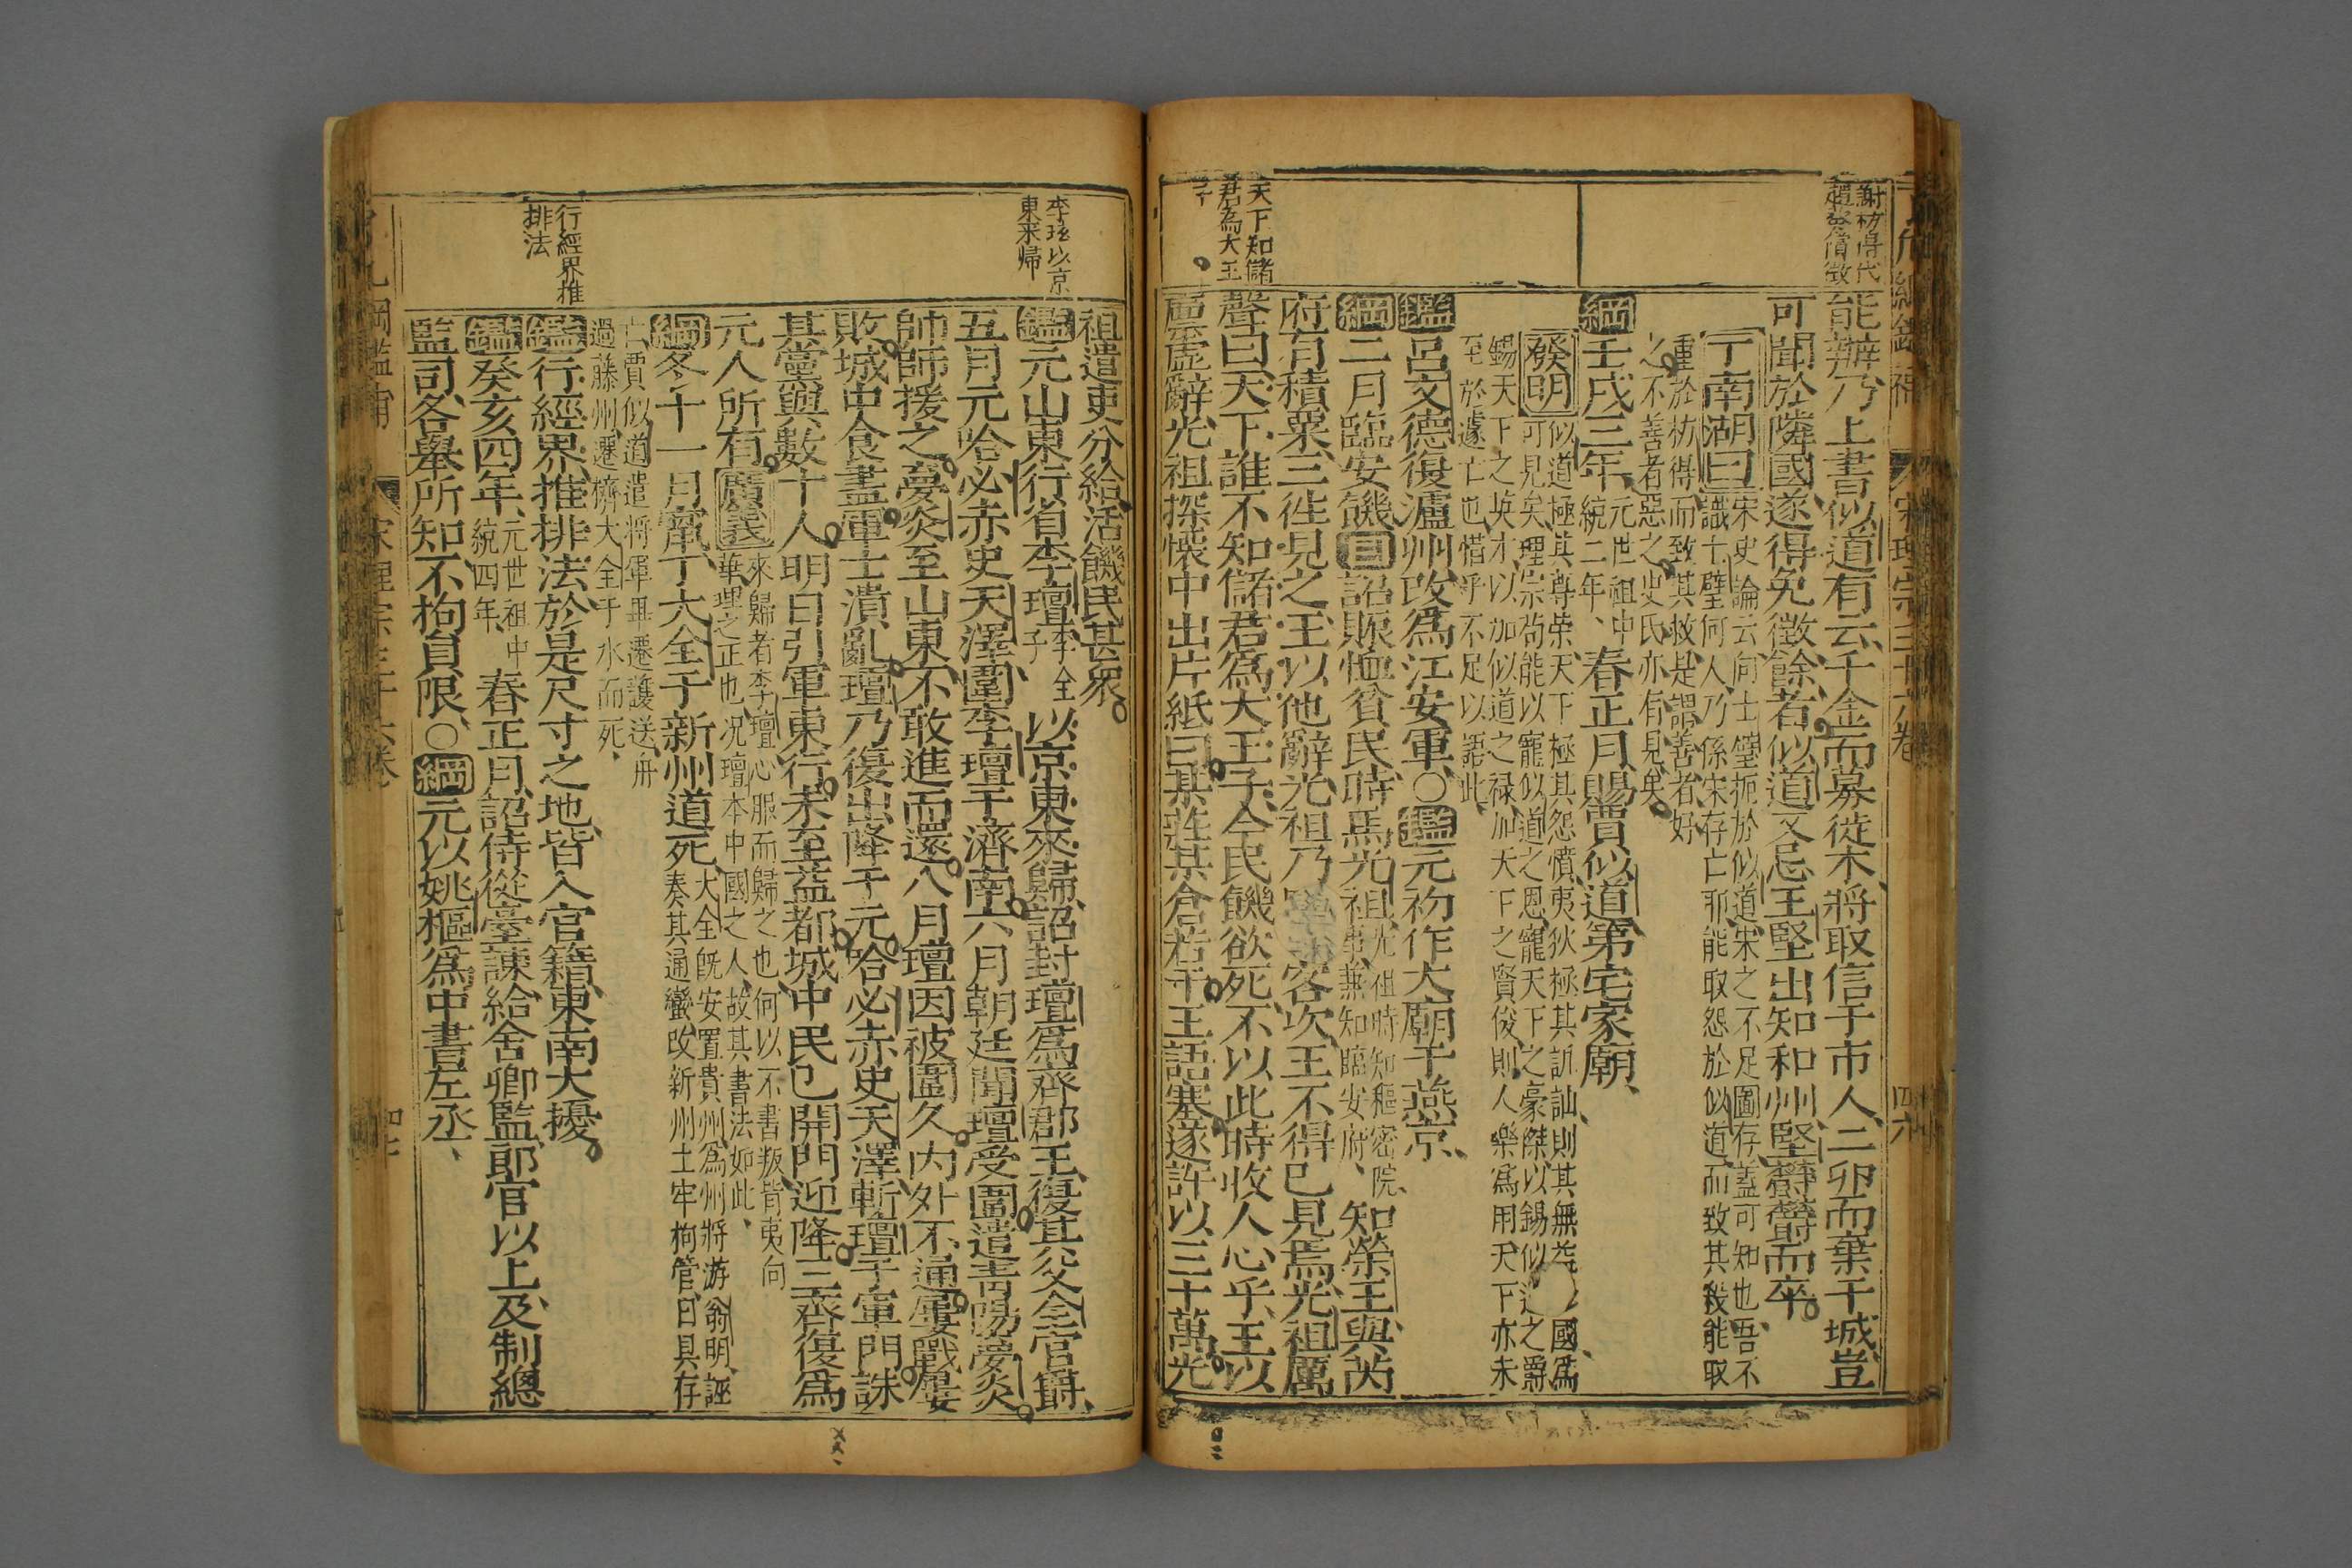 謝枋得代
趙葵償徵
能辦乃上書似道有云千金而募徙木將取信于市人二卵而棄干城豈
可聞於隣國遂得免徵餘者似道又忌王堅出知和州堅鬱鬱而卒
丁南湖曰宋史論云向士璧扼於似道宋之不足圖存蓋可知也吾不
識士璧何人乃係宋存亡耶能取怨於似道而致其殺能取
重於枋得而致其救是謂善者好
之不善者惡之史氏亦有見矣
綱壬戌三年元世祖中
統二年春正月賜賈似道第宅家廟
發明似道極其尊榮天下極其怨憤夷狄極其訴訕則其無國爲
可見矣理宗苟能以寵似道之恩寵天下之豪傑以錫似道之爵
錫天下之英才以加似道之禄加天下之賢俊則人樂爲用天下亦未
至於遽亡也惜乎不足以語此
鑑呂文德復瀘州改爲江安軍○鑑元初作太廟于燕京
綱二月臨安饑目詔賑恤貧民時馬光祖光祖時知樞密院
事兼知臨安府知榮王與芮
府有積粟三徃見之王以他辭光祖乃客次王不得已見焉光祖厲
天下知儲
君為大王
子
聲曰天下誰不知儲君爲大王子今民饑欲死不以此時收人心乎王以
廩虛辭光祖探懷中出片紙曰某莊某倉若干王語塞遂許以三十萬光
宋理宗三十六卷
四六
祖遣吏分給活饑民甚衆
李璮以京
東來歸
鑑元山東行省李璮李全
子以京東來歸詔封璮爲齊郡王復其父全官爵
五月元哈必赤史天澤圍李璮于濟南六月朝廷聞璮受圍遣青陽夢炎
帥師援之夢炎至山東不敢進而還八月璮因被圍久内外不通屢戰屢
敗城中食盡軍士潰亂璮乃復出降于元哈必赤史天澤斬璮于軍門誅
其黨與數十人明日引軍東行未至益都城中民已開門迎降三齊復爲
元人所有廣義來歸者李璮心服而歸之也何以不書叛背夷向
華理之正也况璮本中國之人故其書法如此
綱冬十一月竄丁大全于新州道死大全既安置貴州爲州將游翁明誣
奏其通蠻改新州土牢拘管日具存
亡賈似道遣將軍畢遷護送舟
過藤州遷擠大全于水而死
行經界推
排法
鑑行經界推排法於是尺寸之地皆入官籍東南大擾
鑑癸亥四年元世祖中
統四年春正月詔侍從臺諫給舍卿監郎官以上及制總
監司各舉所知不拘員限○綱元以姚樞爲中書左丞
宋理宗三十六卷
四七